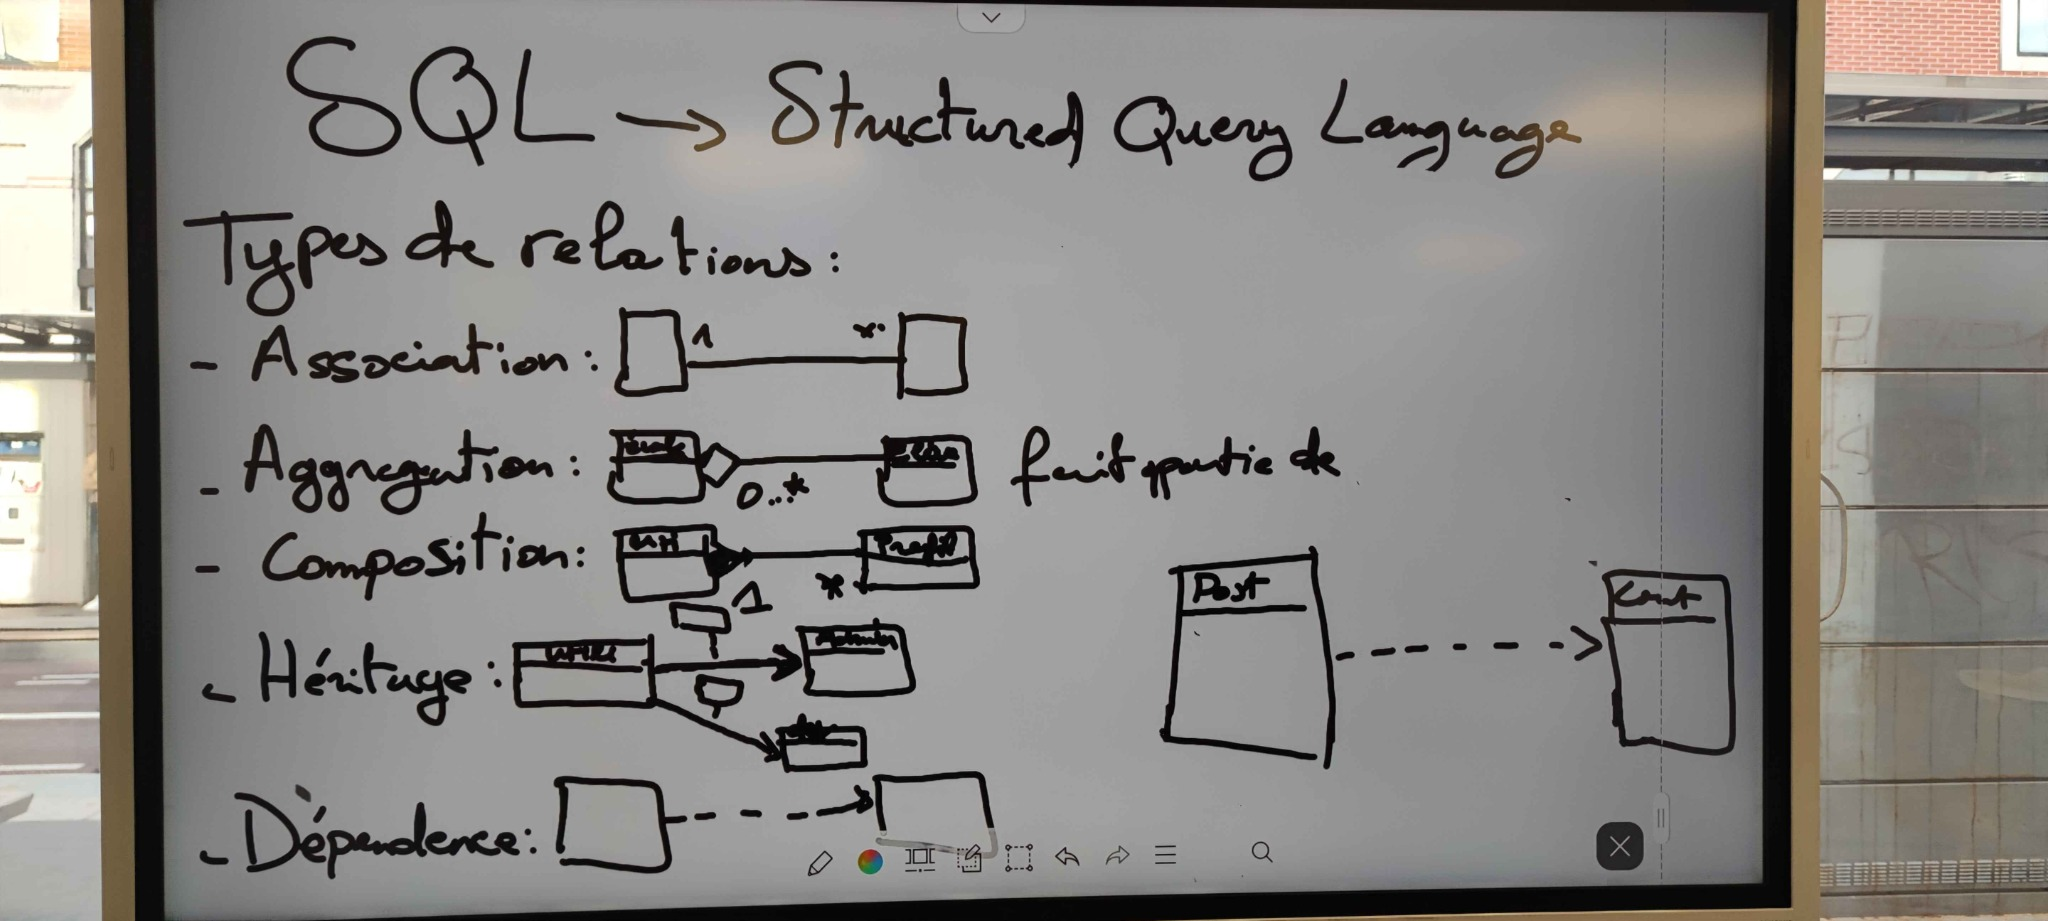 SQL → Structured Query Language
Types de relations:
- Association: 1 *
- Aggregation: 0..* fait partie de
- Composition: Profil
1 *
- Héritage:
Post
- Dépendence: